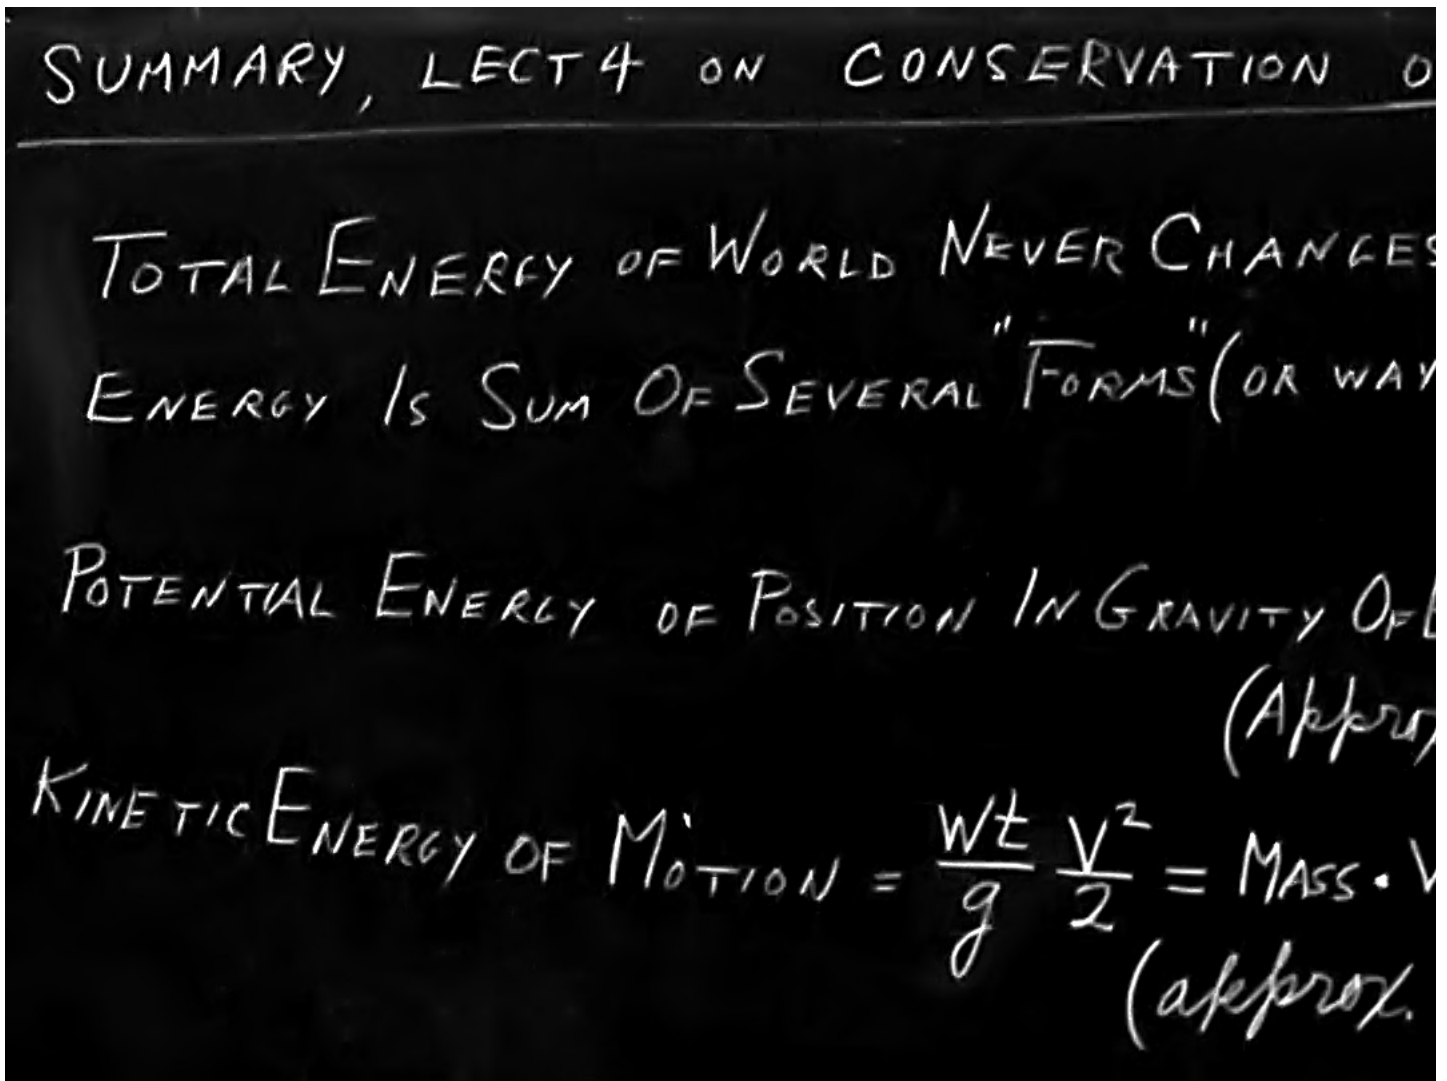 SUMMARY, LECT 4 ON CONSERVATION O
TOTAL ENERGY OF WORLD NEVER CHANGES
ENERGY IS SUM OF SEVERAL "FORMS" (OR WAY
POTENTIAL ENERGY OF POSITION IN GRAVITY OF E
(Approx
KINETIC ENERGY OF MOTION = Wt/g V²/2 = MASS · V
(approx.